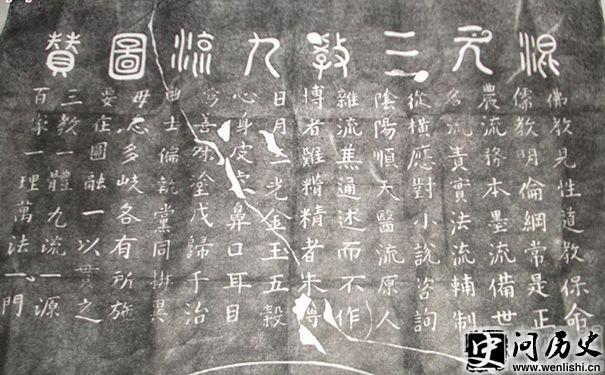 混元三教九流圖贊
佛教見性道教保命
儒教明倫綱常是正
農流務本墨流備世
名流責實法流輔制
從橫應對小說咨詢
陰陽順天醫流原人
雜流兼通述而不作
博者難精精者未博
日月三光金玉五穀
心身皮膚鼻口耳目
為善殊塗咸歸于治
曲士偏執黨同排異
毋患多歧各有所施
要在圓融一以貫之
三教一體九流一源
百家一理萬法一門
史 问历史
www.wenlishi.cn